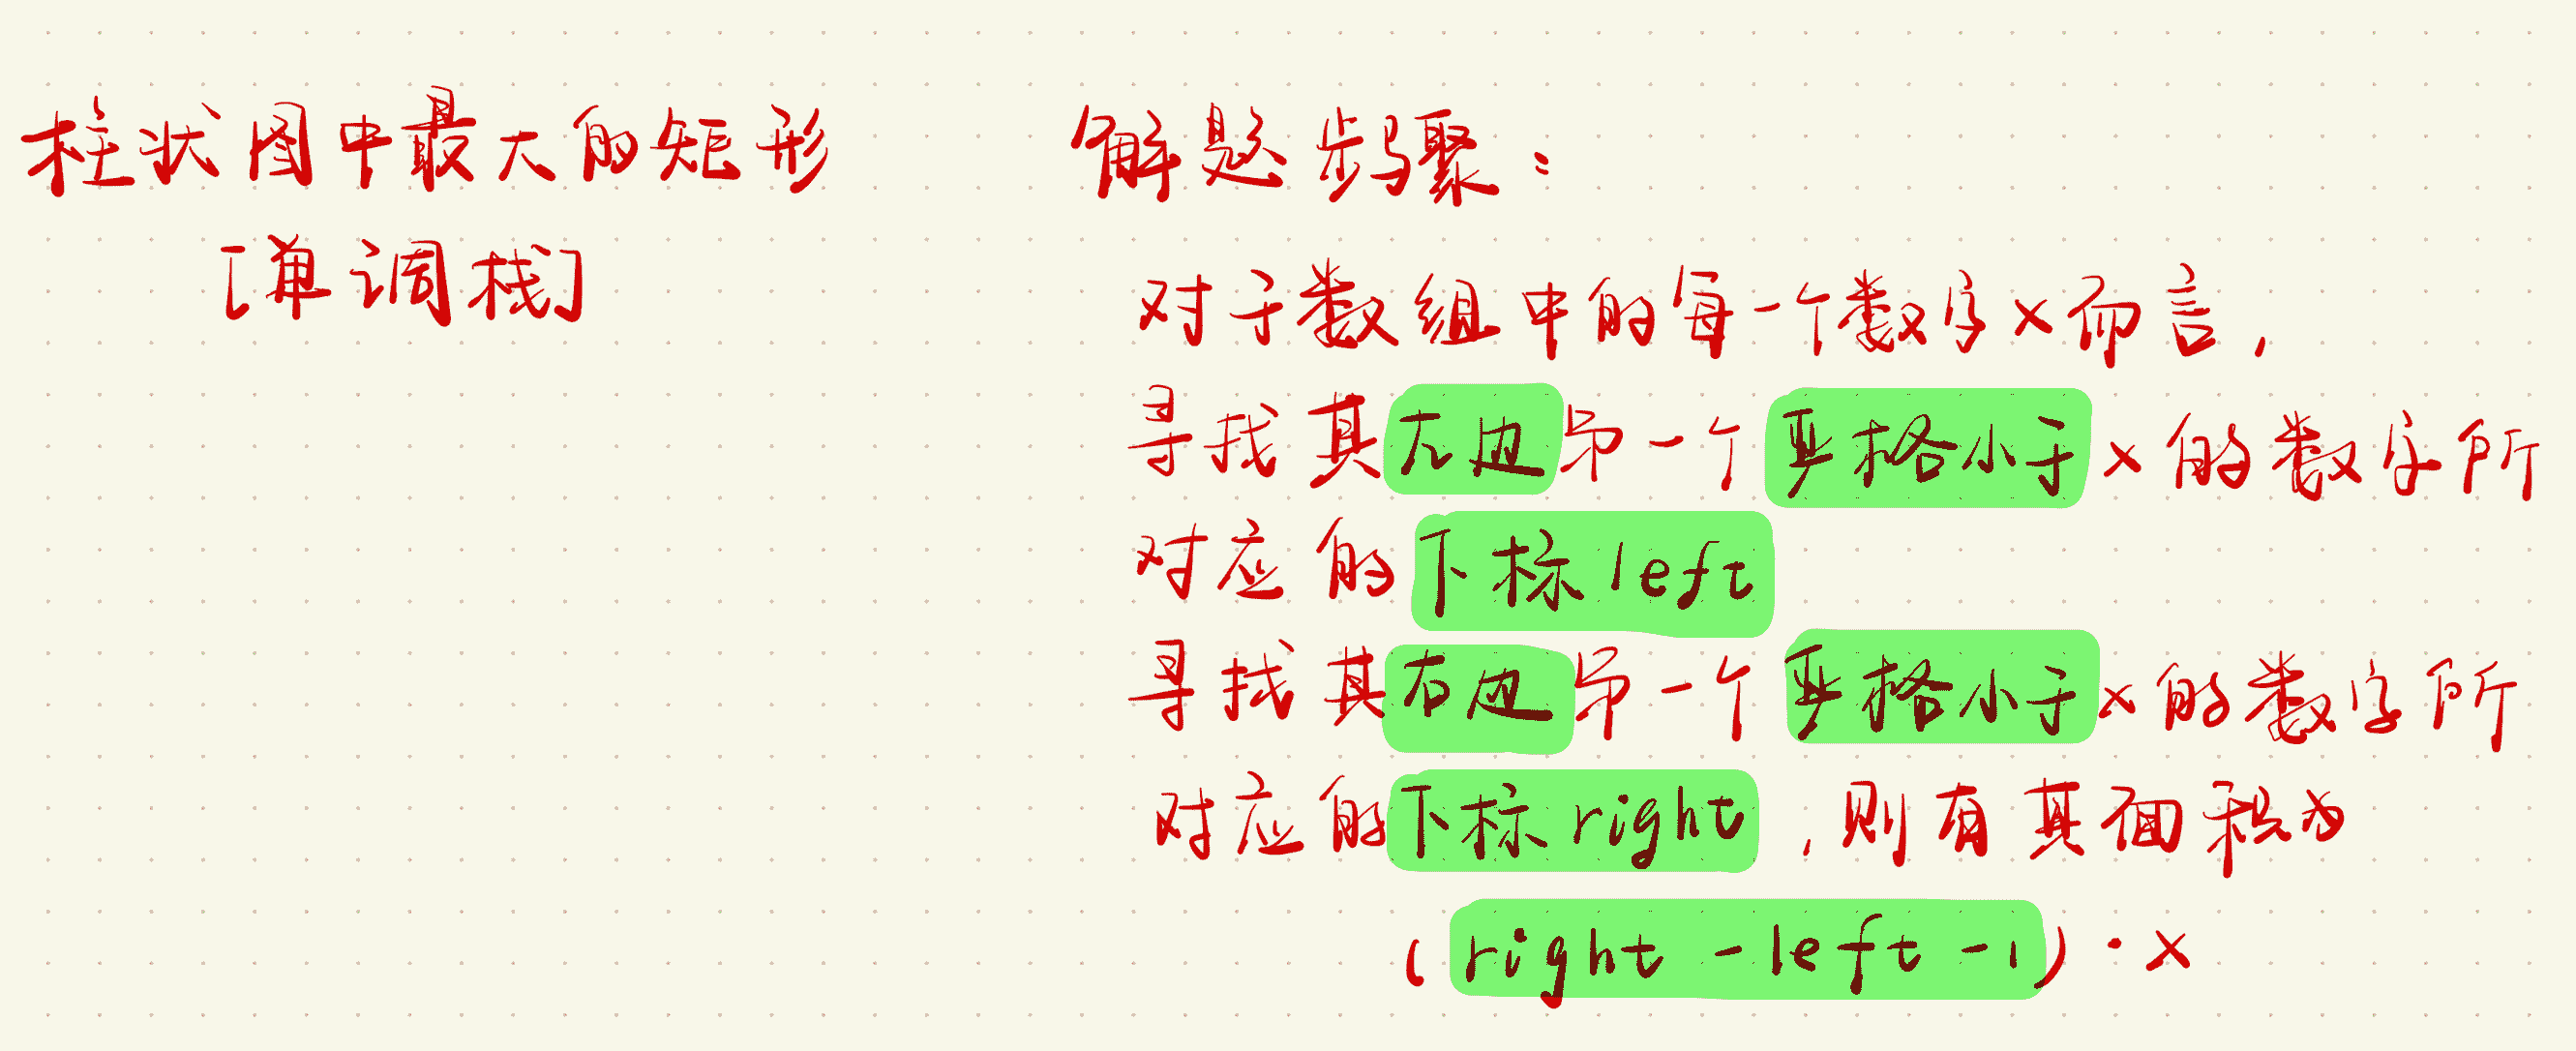 柱状图中最大的矩形
[单调栈]
解题步骤：
对于数组中的每一个数字x而言，
寻找其左边第一个严格小于x的数字所
对应的下标left
寻找其右边第一个严格小于x的数字所
对应的下标right，则有其面积为
(right-left-1)·x